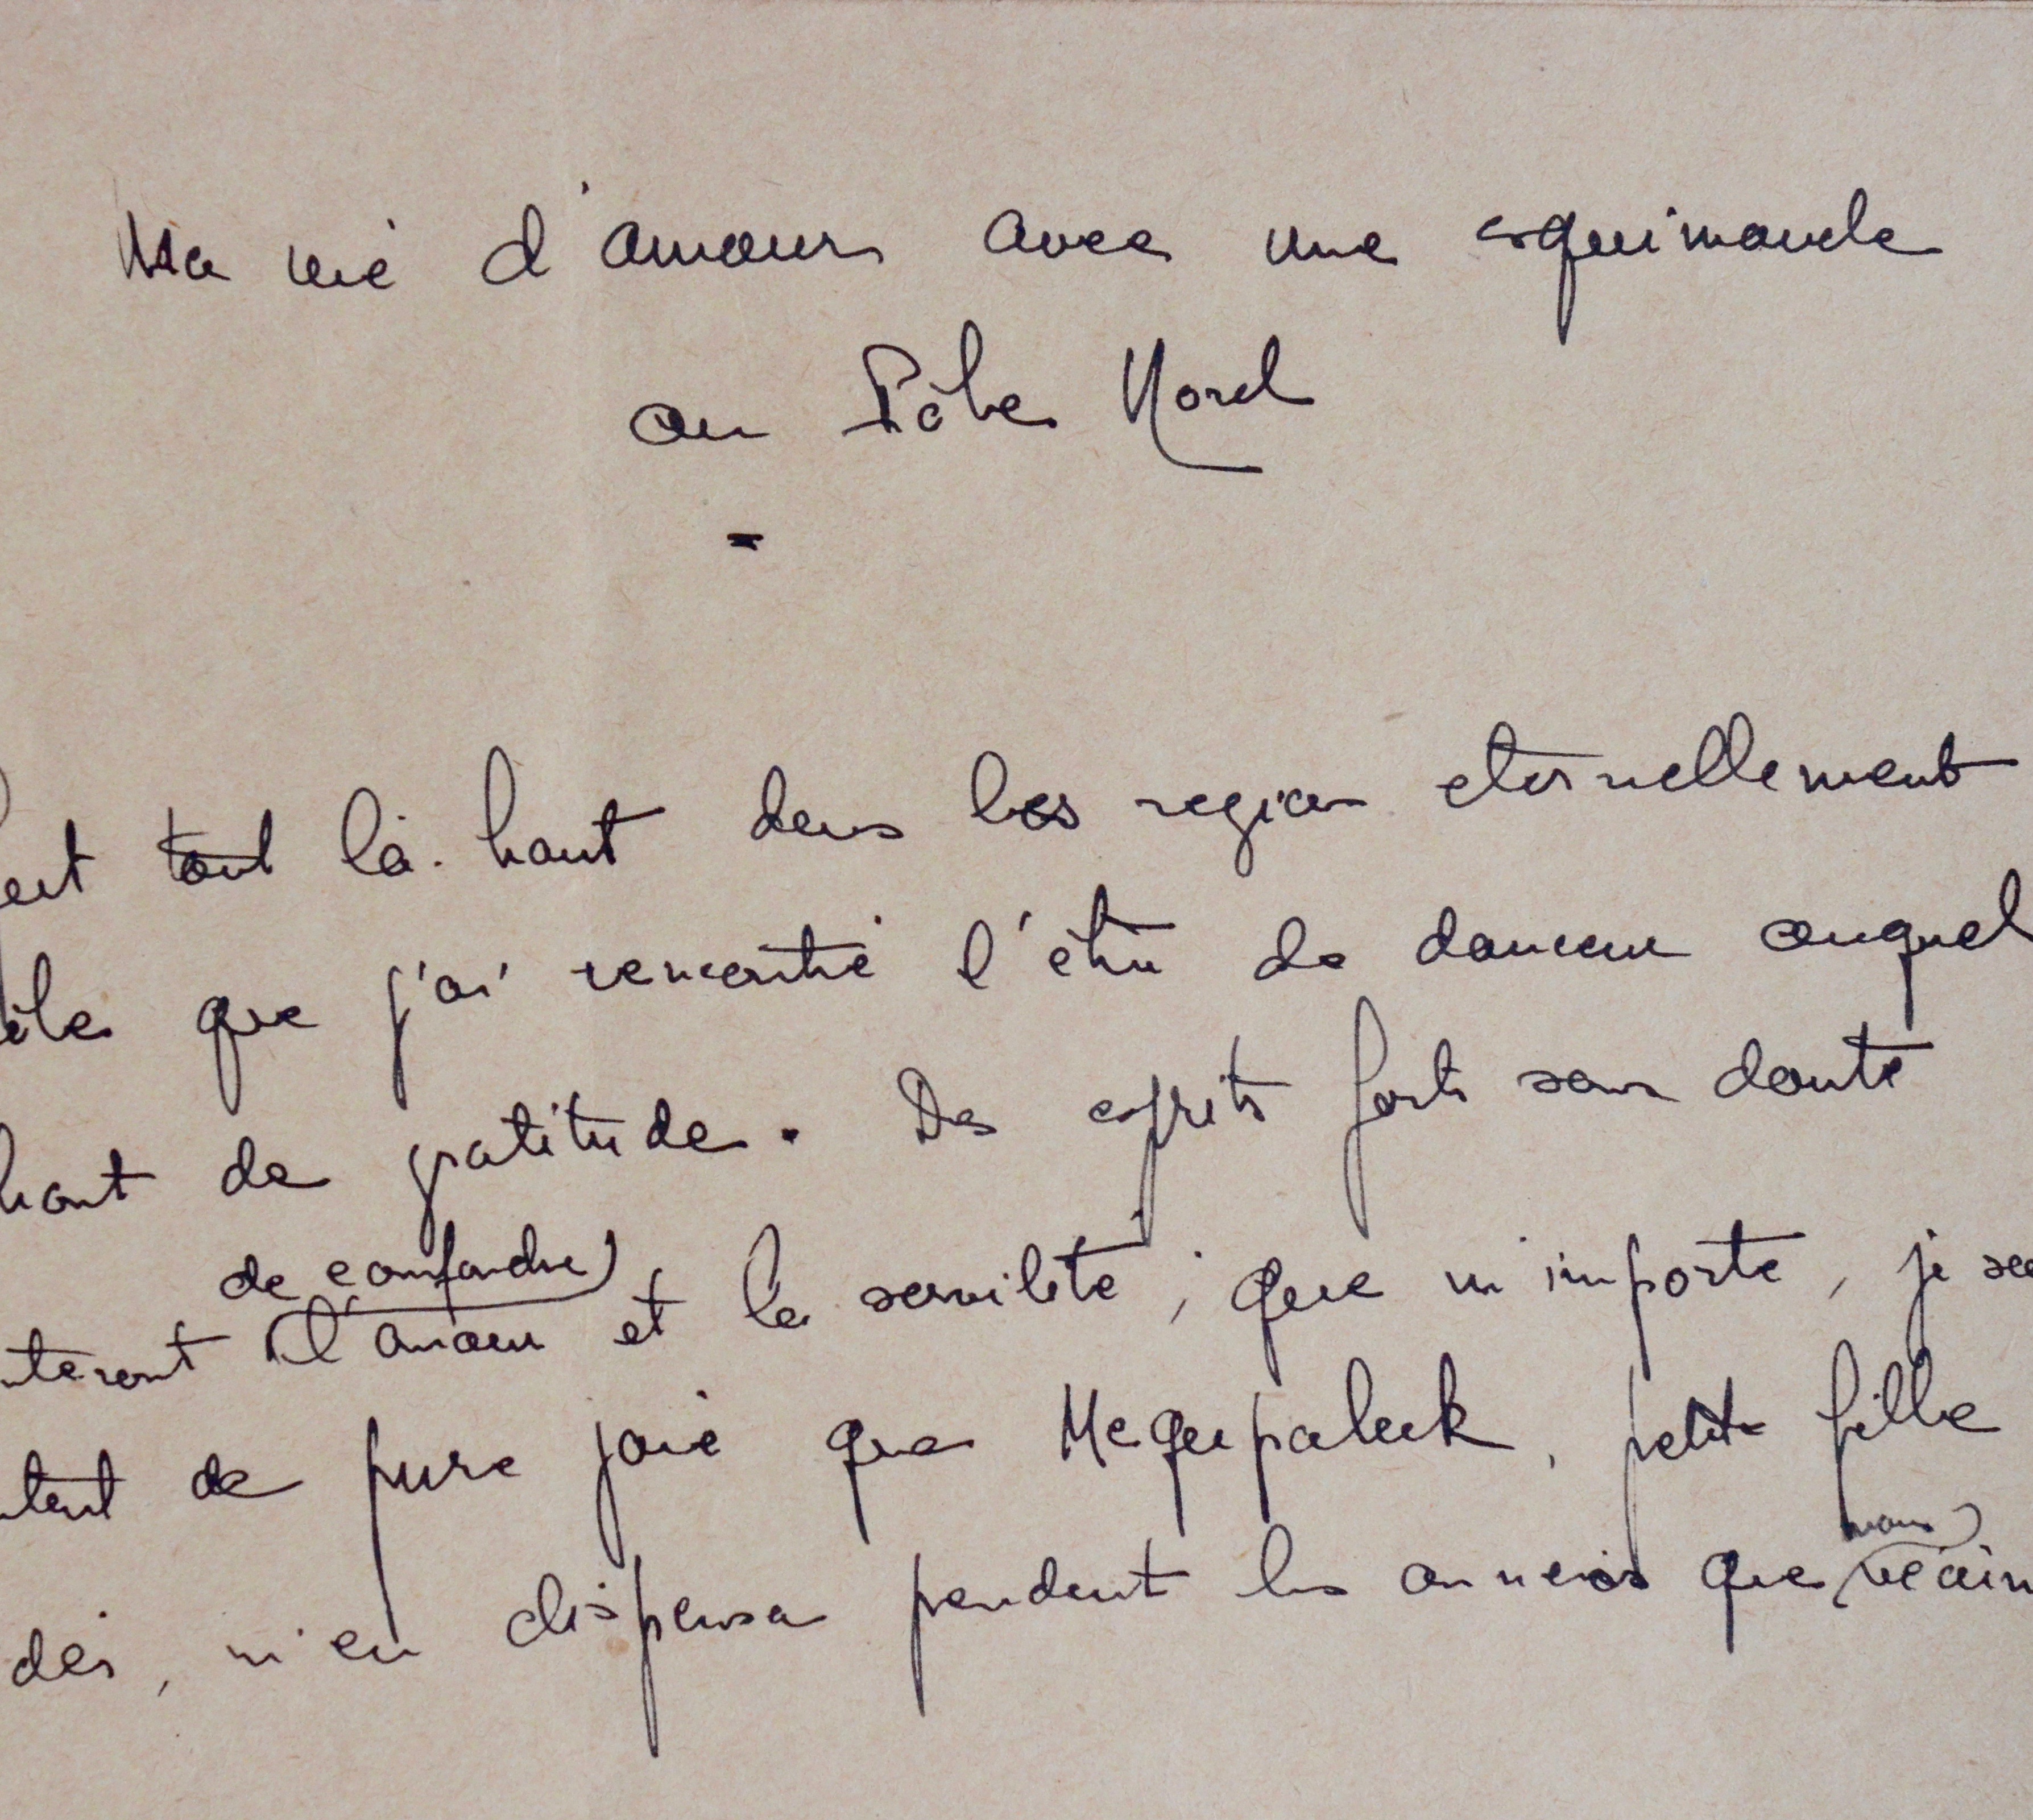 Ma vie d'amour avec une esquimaude
au Pôle Nord
est tout là-haut dans les region eternellement
que j'ai rencontré l'être de douceur auquel
de gratitude. Des esprits forts sans doute
de confondre
l'amour et la servilité ; que m'importe, je
de pure joie que Mequpaluk, petite fille
nous
des, m'en dispensa pendant les années que